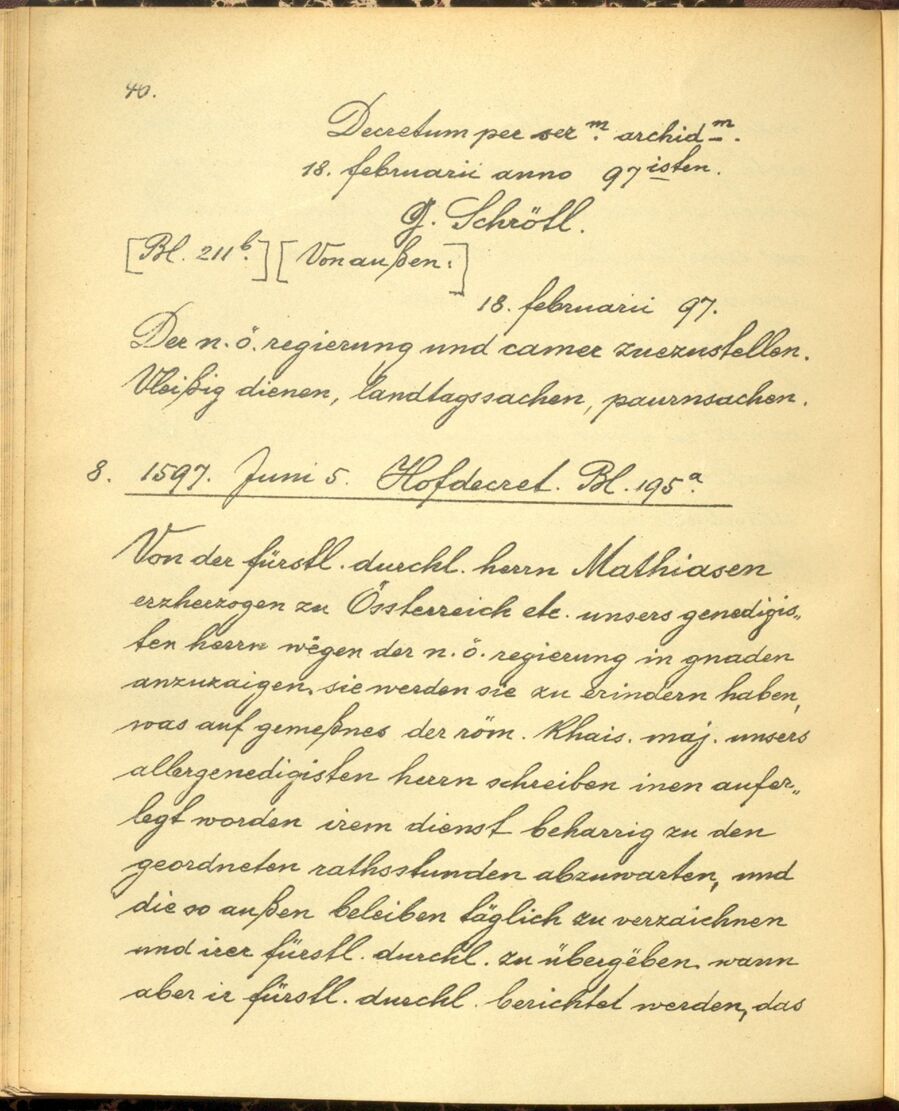 40.
Decretum per ser m. archid m.
18. februarii anno 97 isten.
G. Schrötl.
[Bl. 211 b.] [Von außen:]
18. februarii 97.
Der n. ö. regierung und camer zuezustellen.
Vleißig dienen, landtagssachen, paurnsachen.
8. 1597. Juni 5. Hofdecret. Bl. 195 a.
Von der fürstl. durchl. herrn Mathiasen
erzherzogen zu Össterreich etc. unsers genedigis„
ten herrn wëgen der n. ö. regierung in gnaden
anzuzaigen, sie werden sie zu erindern haben,
was auf gemeßnes der röm. Khais. maj. unsers
allergenedigisten herrn schreiben inen aufer„
legt worden irem dienst beharrig zu den
geordneten rathsstunden abzuwarten, und
die so außen beleiben täglich zu verzaichnen
und irer fürstl. durchl. zu übergëben. wann
aber ir fürstl. durchl. berichtet werden, das